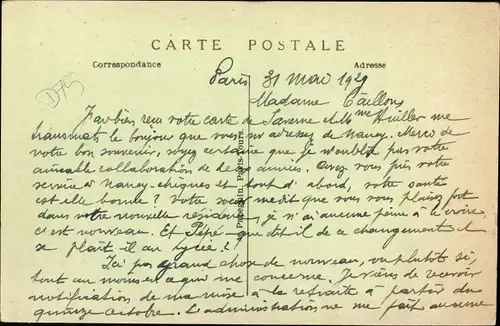 D75
CARTE POSTALE
Correspondance
Adresse
Paris 31 Mai 1929
Madame Taillon
J'ai bien reçu votre carte de Saverne et Mme Huiller me
transmet le bonjour que vous m'adressez de Nancy. Merci de
votre bon souvenir, soyez certaine que je n'oublie pas votre
aimable collaboration de deux années. Avez vous pris votre
service à Nancy-chèques et tout d'abord, votre santé
est elle bonne ? Votre sœur me dit que vous vous plaisez fort
dans votre nouvelle résidence, je n'ai aucune peine à le croire,
c'est nouveau. Et Pépé que dit-il de ce changement et
se plaît il au lycée ?
Ici pas grand chose de nouveau, ou plutôt si,
tout au moins en ce qui me concerne. Je viens de recevoir
notification de ma mise à la retraite à partir du
quinze octobre. L'administration ne me fait aucune